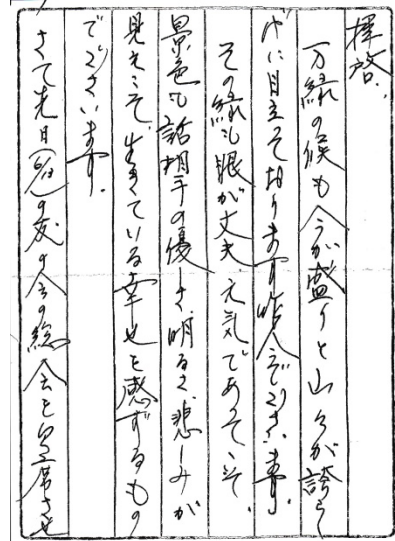 拝啓、
万緑の候も今が盛りと山々が誇らし
げに目立っております昨今でございます。
その緑も眼が丈夫、元気であってこそ、
景色も話相手の優しさ、明るさ、悲しみが
見えこそ、生きている幸せを感ずるもの
でございます。
さて先日の友の会の総会を欠席させ